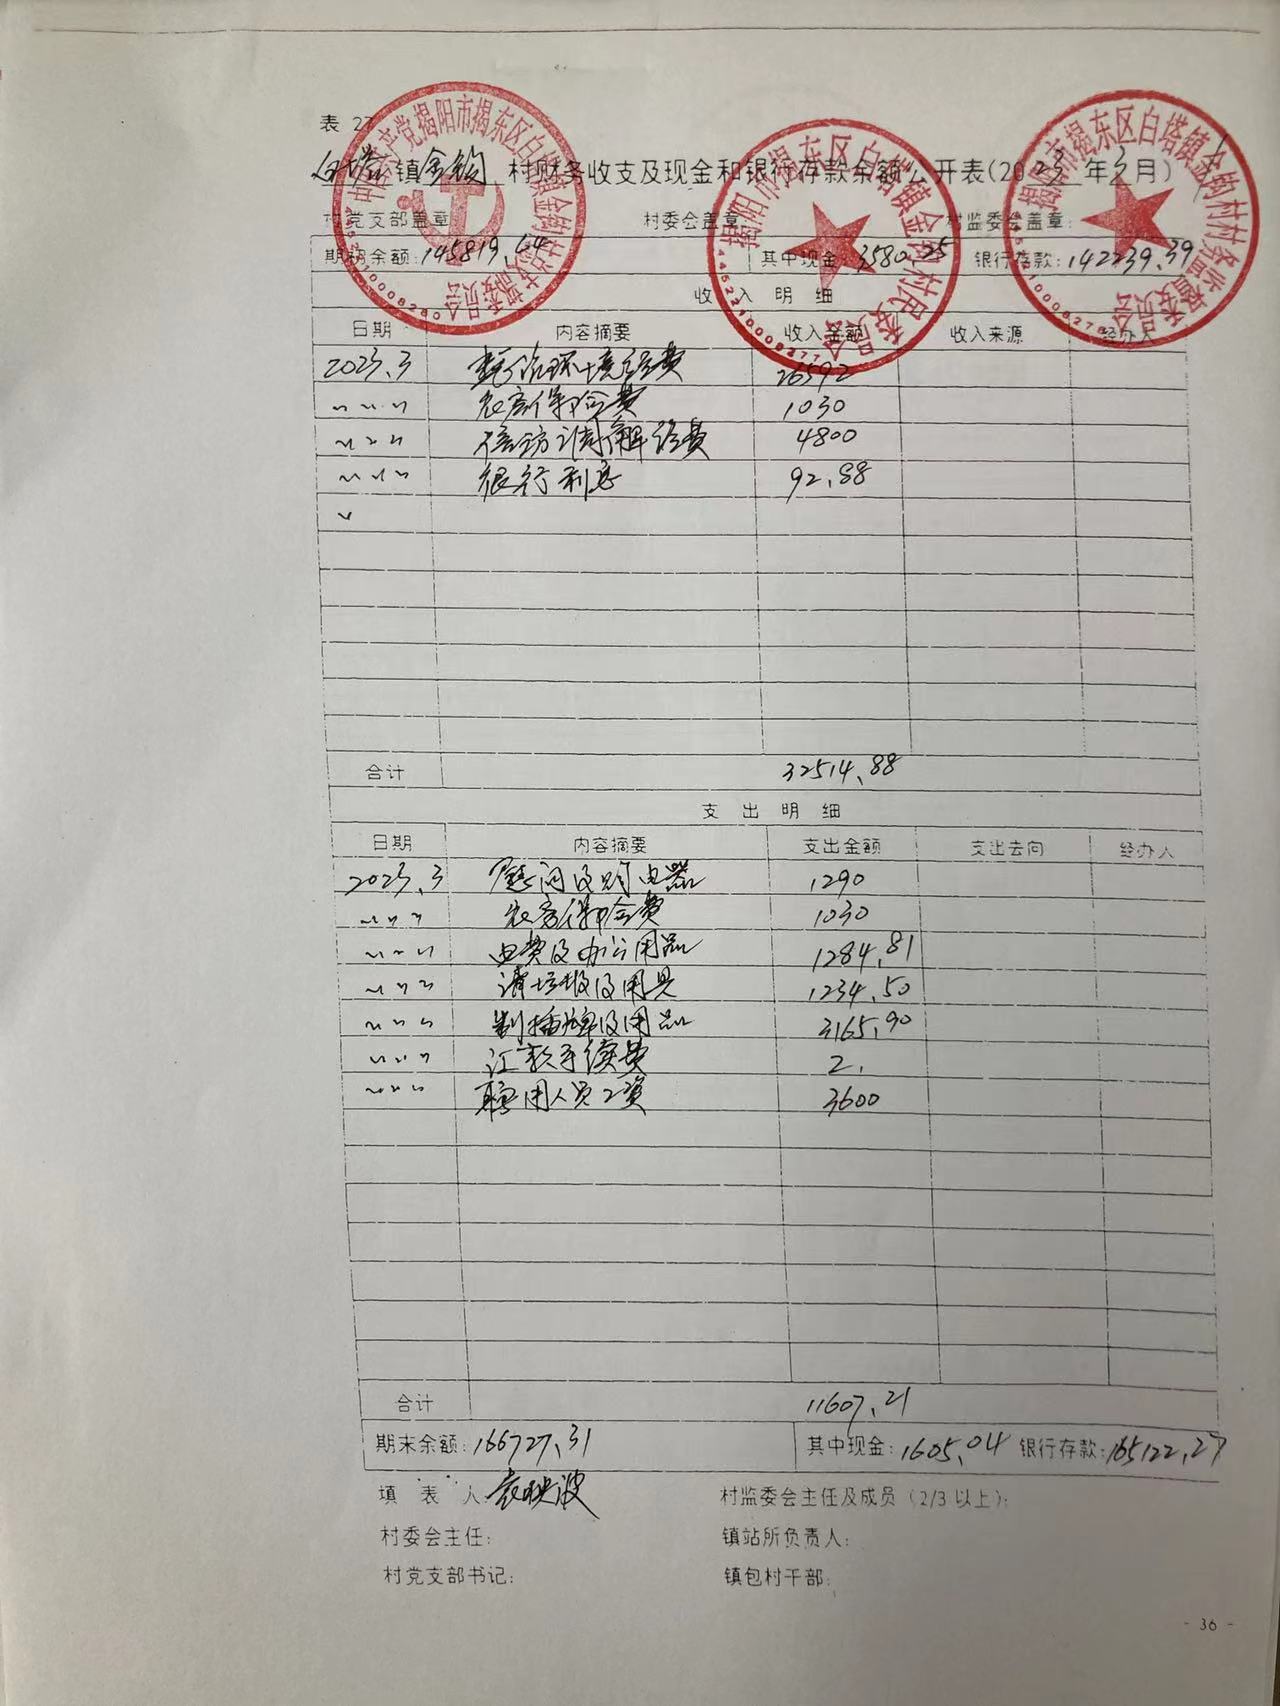 表 27
白塔 镇 金钩 村财务收支及现金和银行存款余额公开表(2023 年 3 月)
村党支部盖章 村委会盖章 村监委会盖章:
期初余额: 145819.64 其中现金 3580.25 银行存款: 142239.39
收 入 明 细
日期 内容摘要 收入金额 收入来源 经办人
2023.3 整治环境经费 26592
〃 〃 〃 农房保险费 1030
〃 〃 〃 信访调解经费 4800
〃 〃 〃 银行利息 92.88
合计 32514.88
支 出 明 细
日期 内容摘要 支出金额 支出去向 经办人
2023.3 慰问及购电器 1290
〃 〃 〃 农房保险费 1030
〃 〃 〃 电费及办公用品 1284.81
〃 〃 〃 清垃圾及用具 1234.50
〃 〃 〃 制插牌及用品 3165.90
〃 〃 〃 汇款手续费 2.
〃 〃 〃 聘用人员工资 3600
合计 11607.21
期末余额: 166727.31 其中现金: 1605.04 银行存款: 165122.27
填 表 人: 袁映波 村监委会主任及成员 (2/3 以上):
村委会主任: 镇站所负责人:
村党支部书记: 镇包村干部:
- 36 -
中国共产党揭阳市揭东区白塔镇金钩村总支部委员会
揭阳市揭东区白塔镇金钩村村民委员会
4452210008277
揭阳市揭东区白塔镇金钩村村务监督委员会